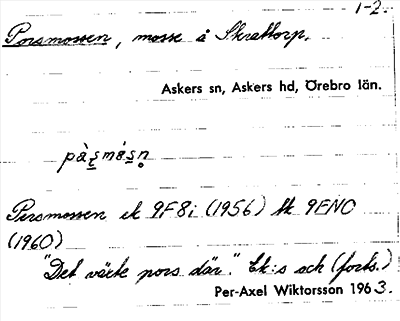 1-2.
Porsmossen, mosse å Skrattorp.
Askers sn, Askers hd, Örebro län.
pàs̠mås̠n̥
Porsmossen ek 9F8i (1956) tk 9FNO
(1960)
"Det växte pors där." Ek:s och (forts.)
Per-Axel Wiktorsson 1963.